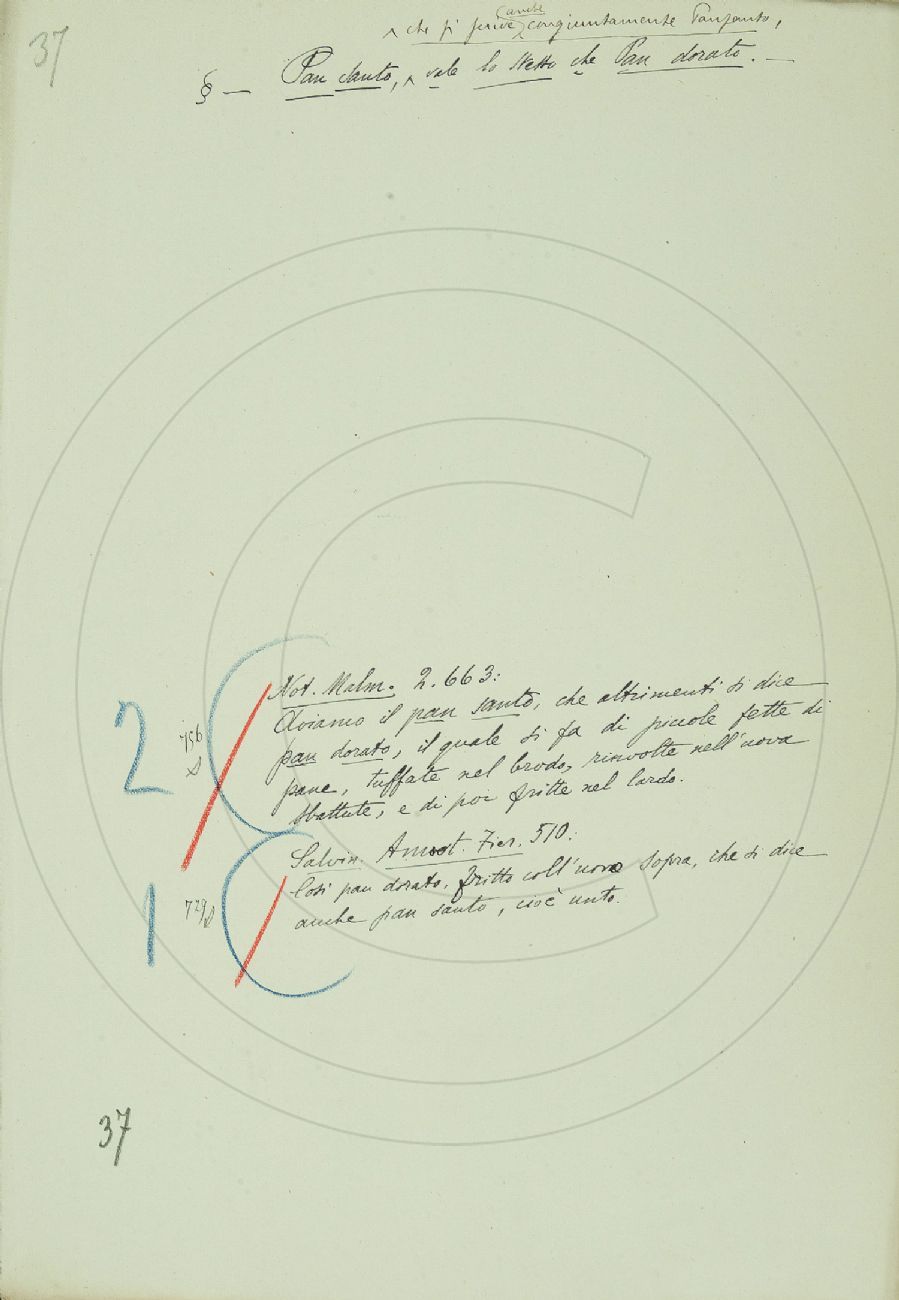 37
anche
che si scrive congiuntamente Pansanto,
§ — Pan santo, vale lo stesso che Pan dorato. —
2
756
Not. Malm. 2. 663:
Aviamo il pan santo, che altrimenti si dice
pan dorato, il quale si fa di piccole fette di
pane, tuffate nel brodo, rinvolte nell'uova
sbattute, e di poi fritte nel lardo.
1
729
Salvin. Annot. Fier. 510.:
Così pan dorato, fritto coll'uovo sopra, che si dice
anche pan santo, cioè unto.
37